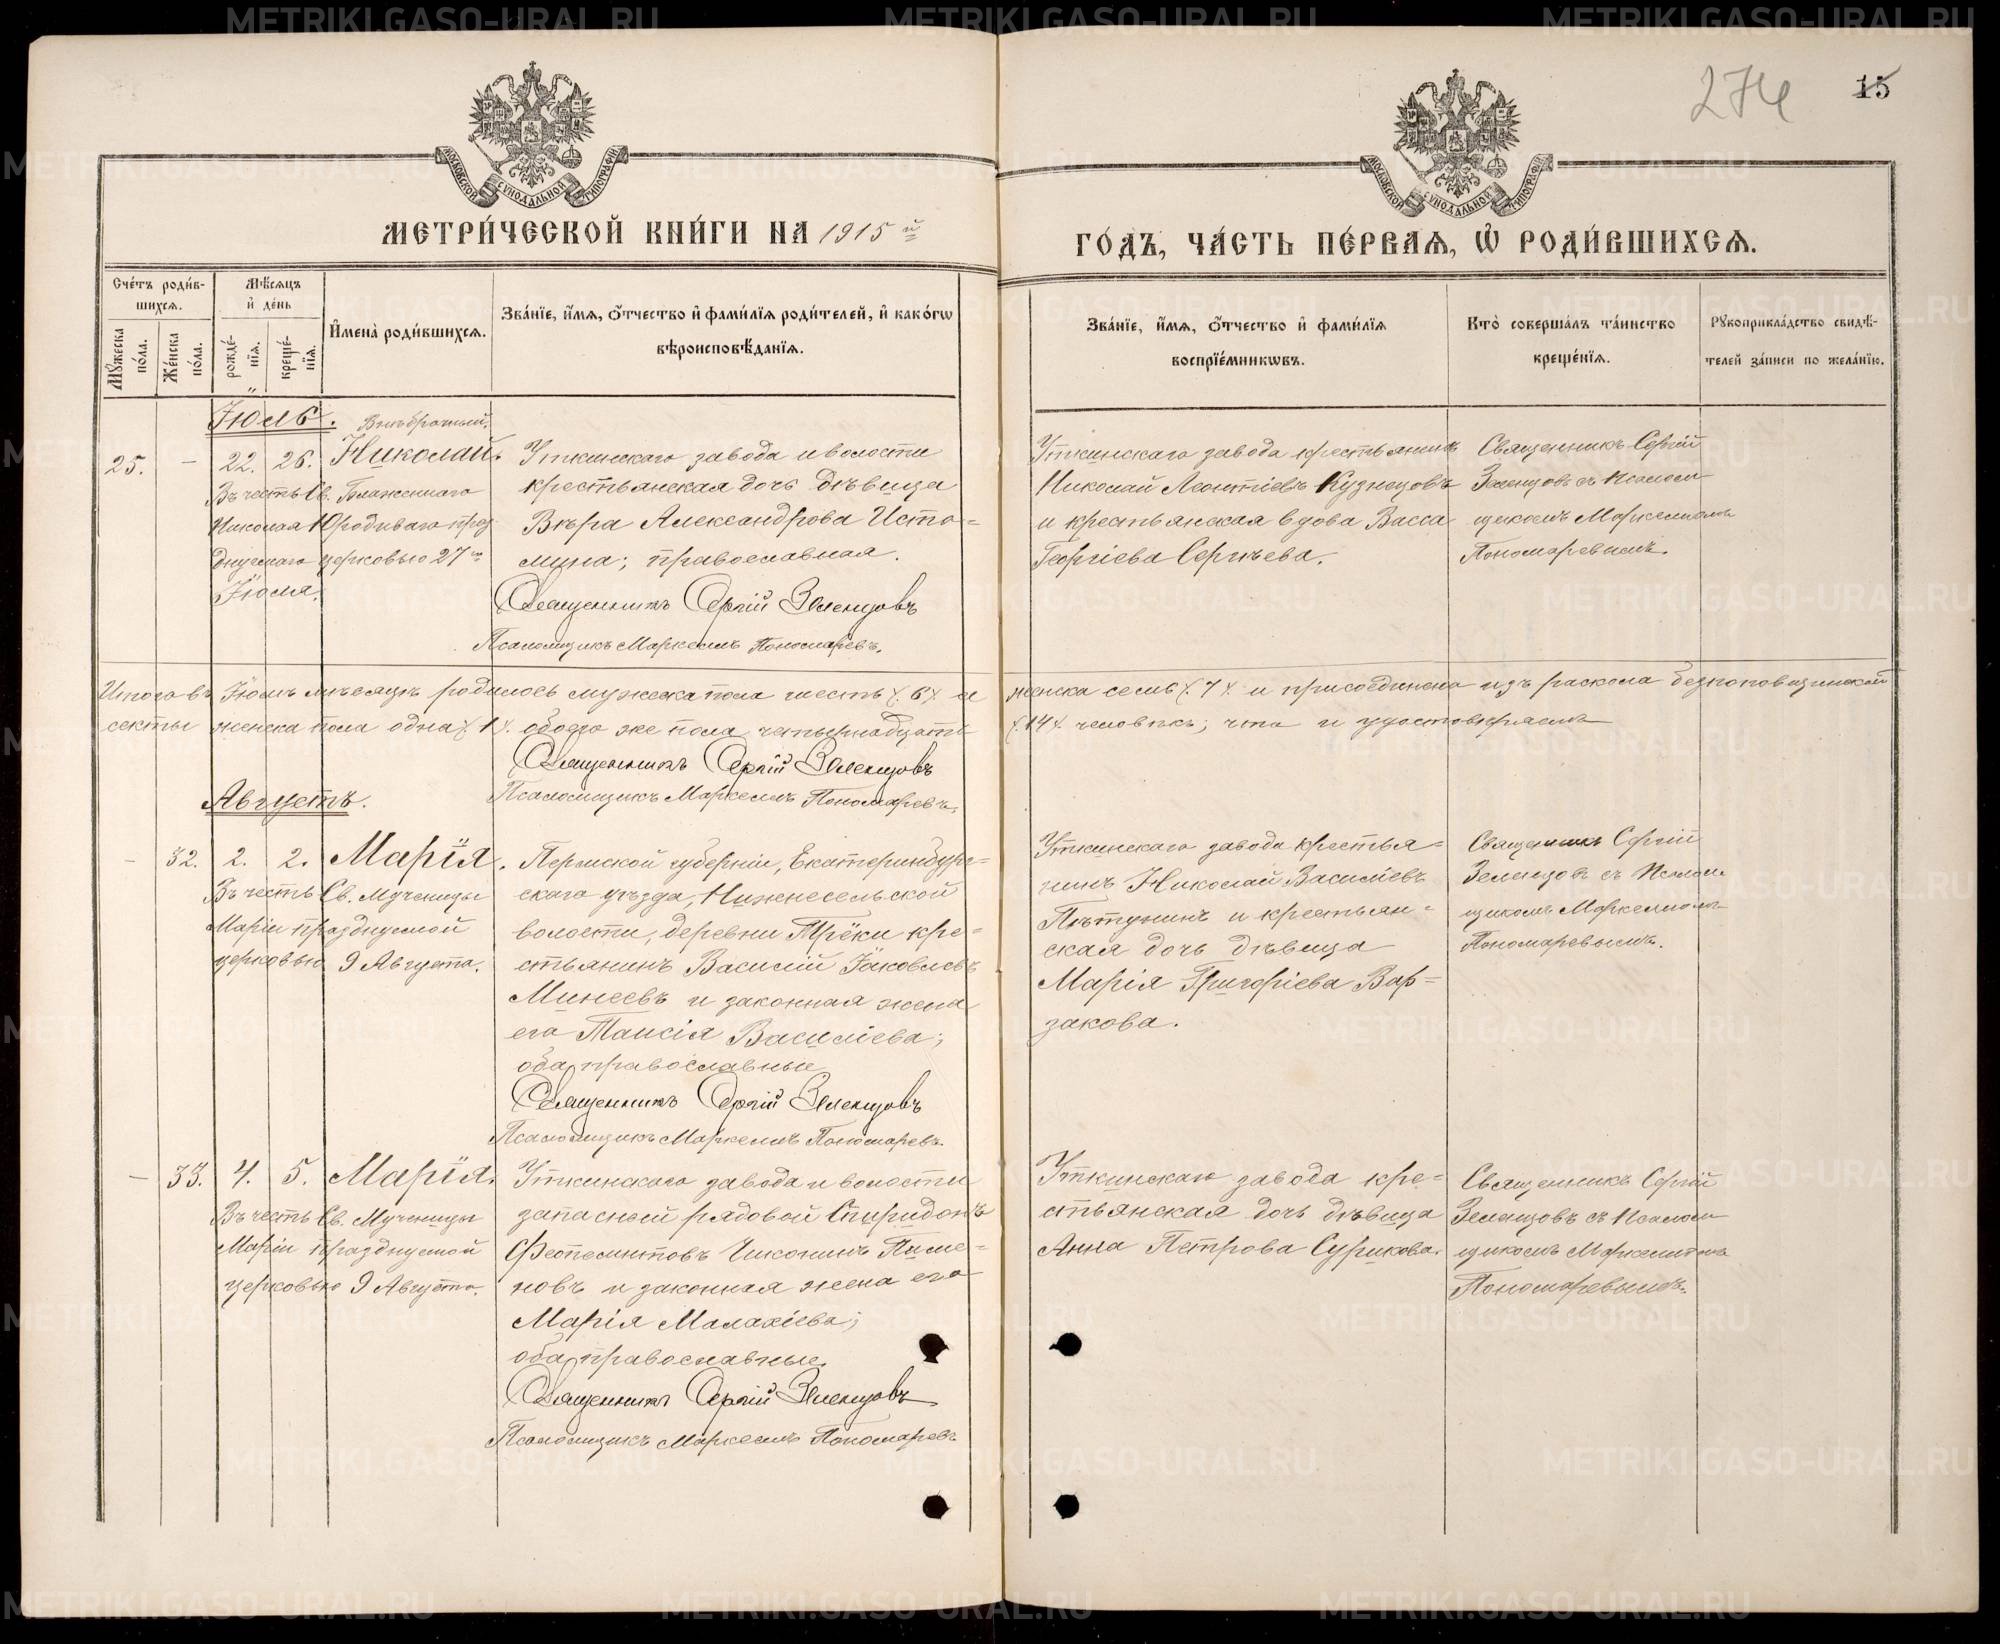 274
15
МОСКОВСКОЙ СѴНОДАЛЬНОЙ ТИПОГРАФІИ
МОСКОВСКОЙ СѴНОДАЛЬНОЙ ТИПОГРАФІИ
МЕТРИ́ЧЕСКОЙ КНИ́ГИ НА 1915й
ГО́ДЪ, ЧА́СТЬ ПЕ́РВАѦ, Ѽ РОДИ́ВШИХСѦ.
Сче́тъ роди́в-
шихсѧ.
Мꙋ́жеска по́ла.
Же́нска по́ла.
Мѣ́сѧцъ
и҆ де́нь
рожде́-
нїѧ.
креще́-
нїѧ.
И҆мена̀ роди́вшихсѧ.
Зва́нїе, и҆́мѧ, ѻ҆́тчество и҆ фами́лїѧ роди́телей, и҆ како́гѡ
вѣроисповѣ́данїѧ.
Зва́нїе, и҆́мѧ, ѻ҆́тчество и҆ фами́лїѧ
воспрїе́мникѡвъ.
Кто̀ соверша́лъ та́инство
креще́нїѧ.
Рꙋкоприкла́дство свидѣ́-
телей за́писи по жела́нїю.
Іюль.
Внѣбрачный.
25. — 22. 26. Николай.
Въ честь Св. Блаженнаго
Николая Юродиваго праз
днуемаго церковью 27го
Іюля.
Уткинскаго завода и волости
крестьянская дочь дѣвица
Вѣра Александрова Исто-
мина; православная.
Священникъ Сергій Зеленцовъ
Псаломщикъ Маркеллъ Пономаревъ.
Уткинскаго завода крестьянинъ
Николай Леонтіевъ Кузнецовъ
и крестьянская вдова Васса
Георгіева Сергѣева.
Священникъ Сергій
Зеленцовъ съ Псалом
щикомъ Маркелломъ
Пономаревымъ.
Итого въ Іюлѣ мѣсяцѣ родилось мужеска пола шесть /. 6 /. и женска семь /. 7 /. и присоединена изъ раскола безпоповщинской
секты женска пола одна /. 1 /. обоего же пола четырнадцать /. 14 /. человѣкъ; что и удостовѣряемъ
Священникъ Сергій Зеленцовъ
Псаломщикъ Маркеллъ Пономаревъ.
Августъ.
— 32. 2. 2. Марія.
Въ честь Св. Мученицы
Маріи празднуемой
церковью 9 Августа.
Пермской губерніи, Екатеринбург-
скаго уѣзда, Нижнесельской
волости, деревни Трёки кре-
стьянинъ Василій Іаковлевъ
Минеевъ и законная жена
его Таисія Василіева;
оба православные
Священникъ Сергій Зеленцовъ
Псаломщикъ Маркеллъ Пономаревъ.
Уткинскаго завода крестья-
нинъ Николай Василіевъ
Пѣтунинъ и крестьян-
ская дочь дѣвица
Марія Григоріева Вар-
закова.
Священникъ Сергій
Зеленцовъ съ Псалом
щикомъ Маркелломъ
Пономаревымъ.
— 33. 4. 5. Марія.
Въ честь Св. Мученицы
Маріи празднуемой
церковью 9 Августа.
Уткинскаго завода и волости
запасный рядовой Спиридонъ
Феопемптовъ Чиконинъ Пиме-
новъ и законная жена его
Марія Малахіева;
оба православные.
Священникъ Сергій Зеленцовъ
Псаломщикъ Маркеллъ Пономаревъ
Уткинскаго завода кре-
стьянская дочь дѣвица
Анна Петрова Сурикова.
Священникъ Сергій
Зеленцовъ съ Псалом
щикомъ Маркелломъ
Пономаревымъ.